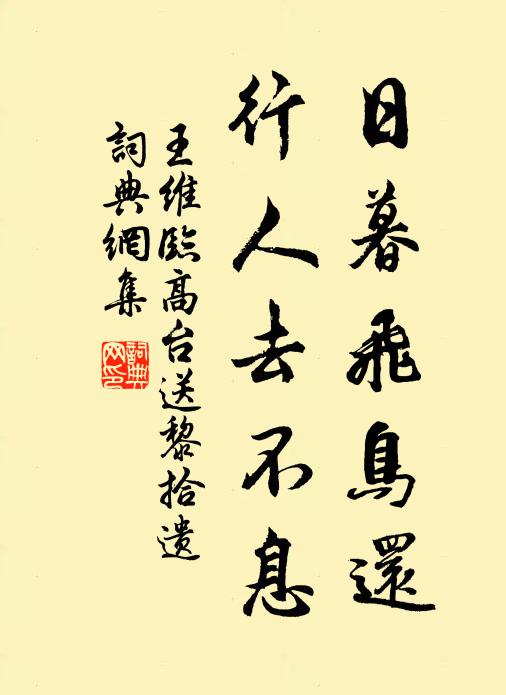 日暮飛鳥還
行人去不息
王維臨高台送黎拾遺
詞典網集
詞典
网印